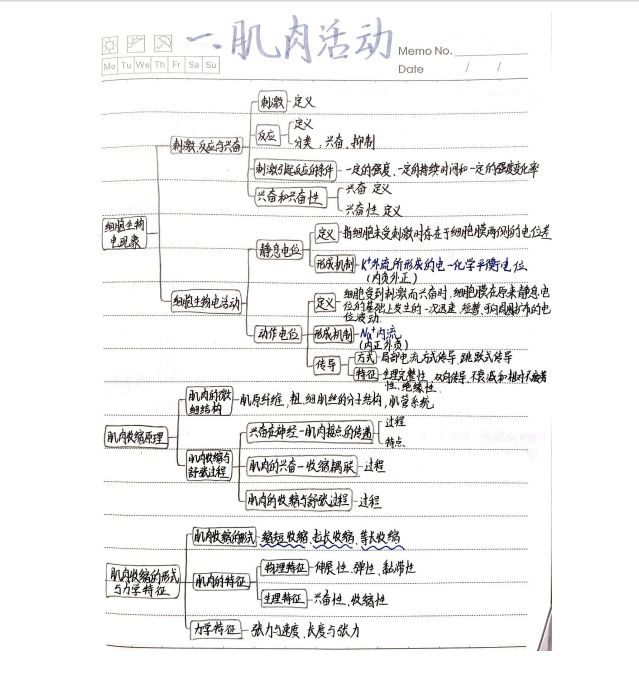 一、肌肉活动
Memo No.
Mo Tu We Th Fr Sa Su
Date / /
刺激 定义
刺激、反应与兴奋
反应 定义
分类：兴奋、抑制
刺激引起反应的条件 一定的强度、一定的持续时间和一定的强度变化率
兴奋和兴奋性 兴奋 定义
兴奋性 定义
细胞生物
电现象
静息电位 定义 指细胞未受刺激时存在于细胞膜两侧的电位差
形成机制 K⁺外流所形成的电-化学平衡电位
(内负外正)
细胞生物电活动
定义 细胞受到刺激而兴奋时，细胞膜在原来静息电
位的基础上发生的一次迅速、短暂、可向周围扩布的电
位波动.
动作电位 形成机制 Na⁺内流
(内正外负)
传导 方式 局部电流方式传导、跳跃式传导
特征 生理完整性、双向传导、不衰减和相对不疲劳
性、绝缘性
肌肉的微
细结构 肌原纤维、粗、细肌丝的分子结构、肌管系统
肌肉收缩原理
兴奋在神经-肌肉接点的传递 过程
特点
肌肉收缩与
舒张过程 肌肉的兴奋-收缩耦联 过程
肌肉的收缩与舒张过程 过程
肌肉收缩的形式 缩短收缩、拉长收缩、等长收缩
肌肉收缩的形式
与力学特征
肌肉的特征 物理特征 伸展性、弹性、黏滞性
生理特征 兴奋性、收缩性
力学特征 张力与速度、长度与张力